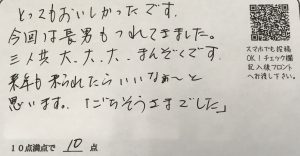 とってもおいしかったです。
今回は長男もつれてきました。
三人共大、大、大、まんぞくです。
来年も来られたらいいなぁ〜と
思います。「ごちそうさまでした」
スマホでも投稿
OK!チェック欄
記入後フロント
へお渡し下さい。
10点満点で 10 点